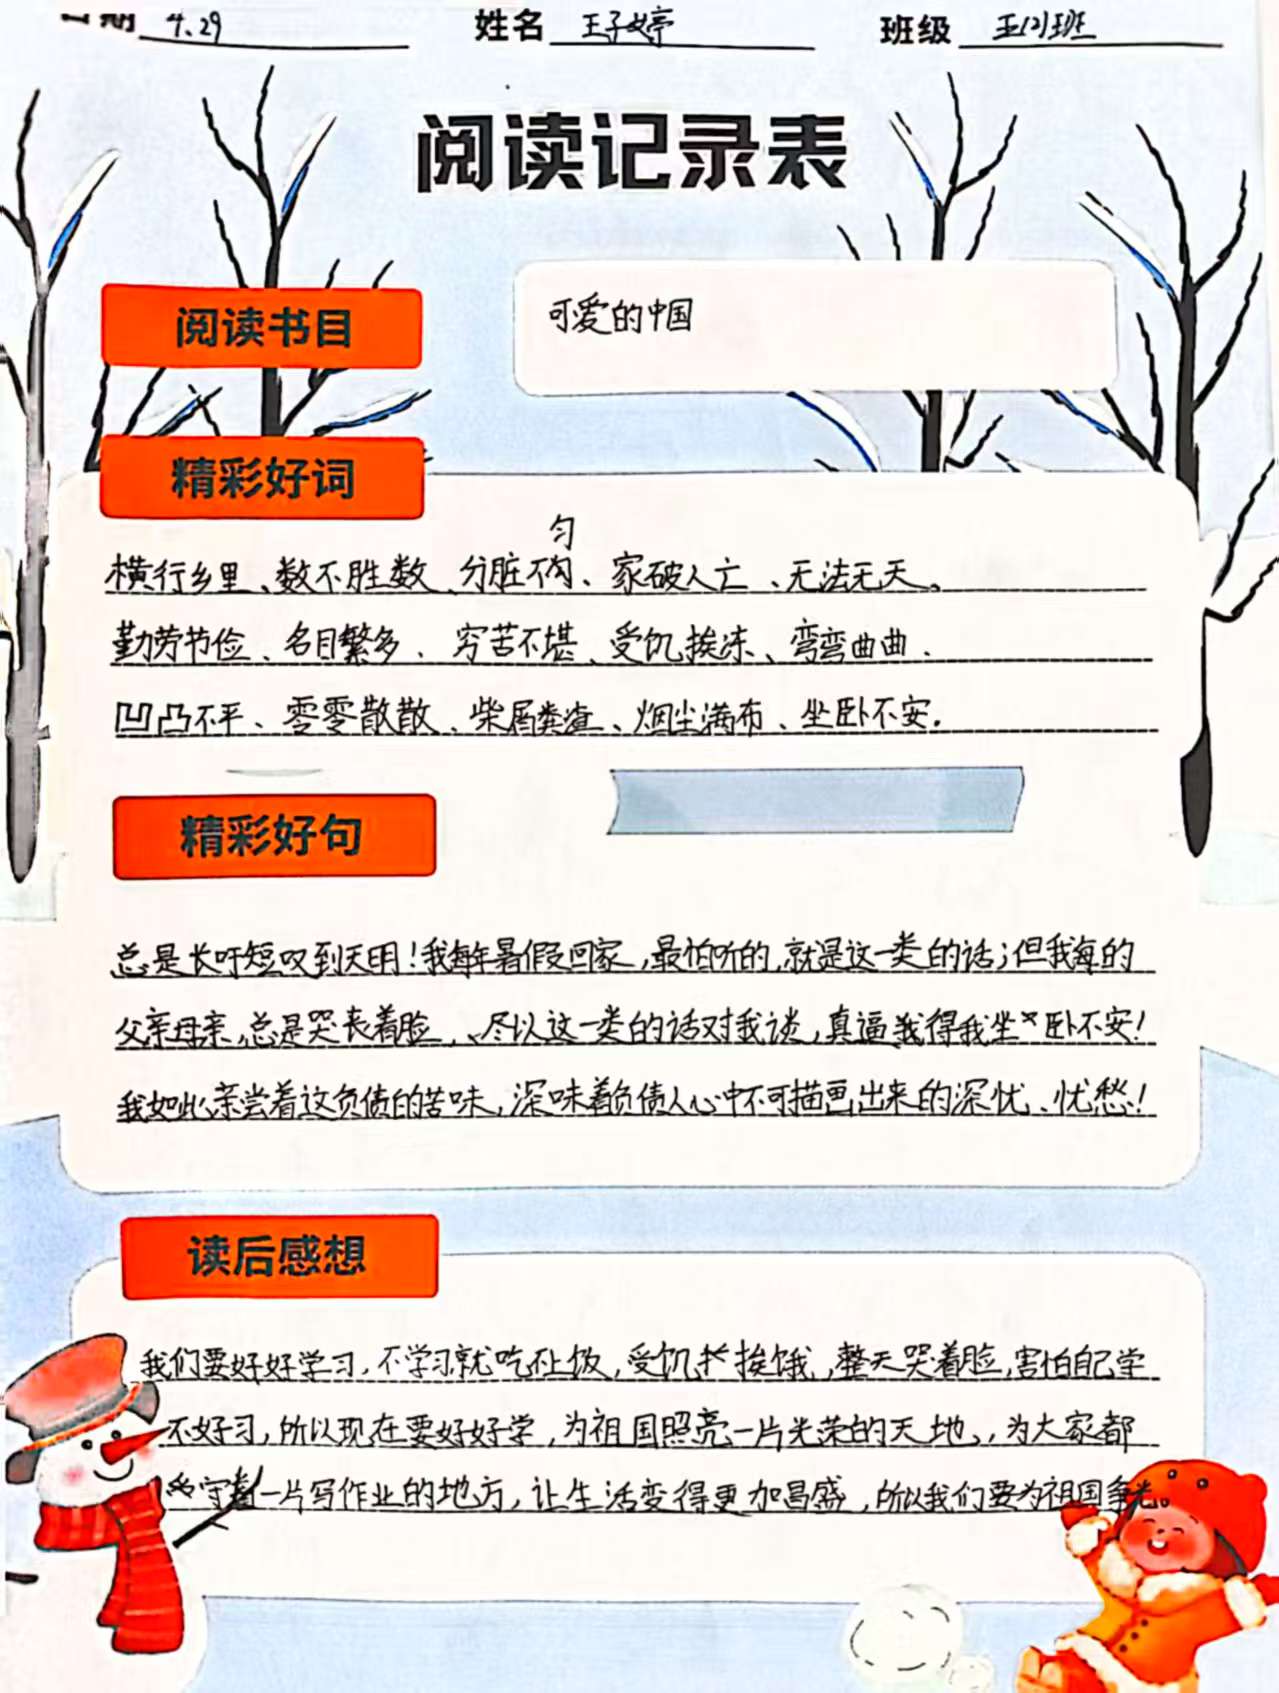 日期 4.29 姓名 王子婷 班级
阅读记录表
阅读书目
可爱的中国
精彩好词
匀
横行乡里、数不胜数、分脏不均、家破人亡、无法无天、
勤劳节俭、名目繁多、穷苦不堪、受饥挨冻、弯弯曲曲.
凹凸不平、零零散散、柴屑粪渣、烟尘满布、坐卧不安.
精彩好句
总是长吁短叹到天明!我每年暑假回家,最怕听的,就是这一类的话;但我每的
父亲母亲,总是哭丧着脸,、尽以这一类的话对我谈,真逼我得我坐卧不安!
我如此亲尝着这负债的苦味,深味着负债人心中不可描画出来的深忧、忧愁!
读后感想
我们要好好学习,不学习就吃不上饭,受饥挨饿,整天哭着脸,害怕自己学
不好习,所以现在要好好学,为祖国照亮一片光荣的天地,,为大家都
守着一片写作业的地方,让生活变得更加昌盛,所以我们要为祖国争光。